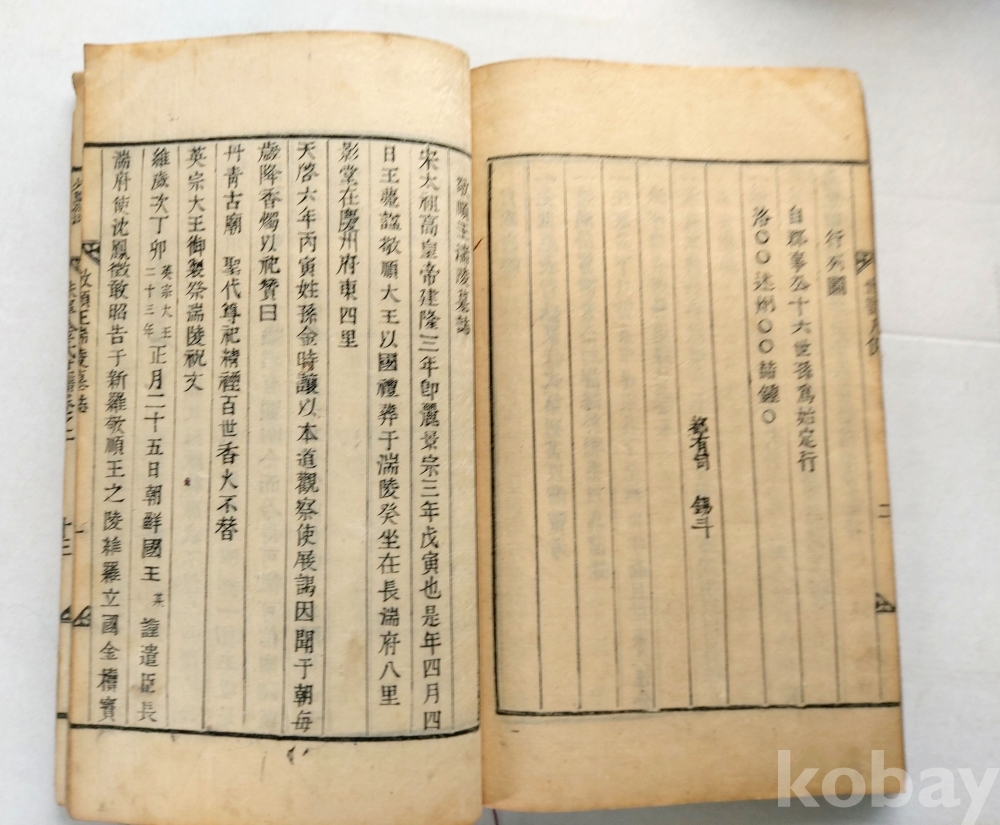 行列圖
自郎事公十六世孫爲始定行
洛〇〇述炯〇〇喆鍾〇
都有司 錫斗
二
敬順王湍陵墓誌
宋太祖高皇帝建隆三年卽麗景宗三年戊寅也是年四月四
日王薨謚敬順大王以國禮葬于湍陵癸坐在長湍府八里
影堂在慶州府東四里
天啓六年丙寅姓孫金時讓以本道觀察使展謁因聞于朝每
歲降香燭以祀贊曰
丹靑古廟 聖代尊祀精禋百世香火不替
英宗大王御製祭湍陵祝文
維歲次丁卯英宗大王二十三年正月二十五日朝鮮國王某謹遣臣長
湍府使沈鳳徵敢昭告于新羅敬順王之陵維羅立國金櫝寶
敬順王湍陵墓誌
一
十三
kobay